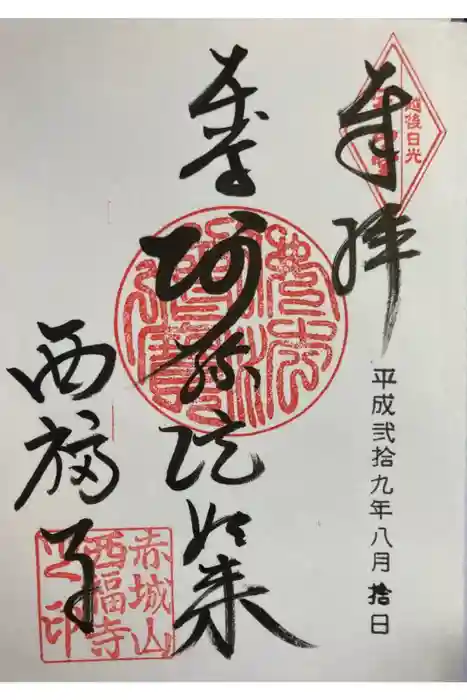 越後日光
奉拝
平成弐拾九年八月拾日
阿弥陀如来
西福寺
赤城山
西福寺
之印